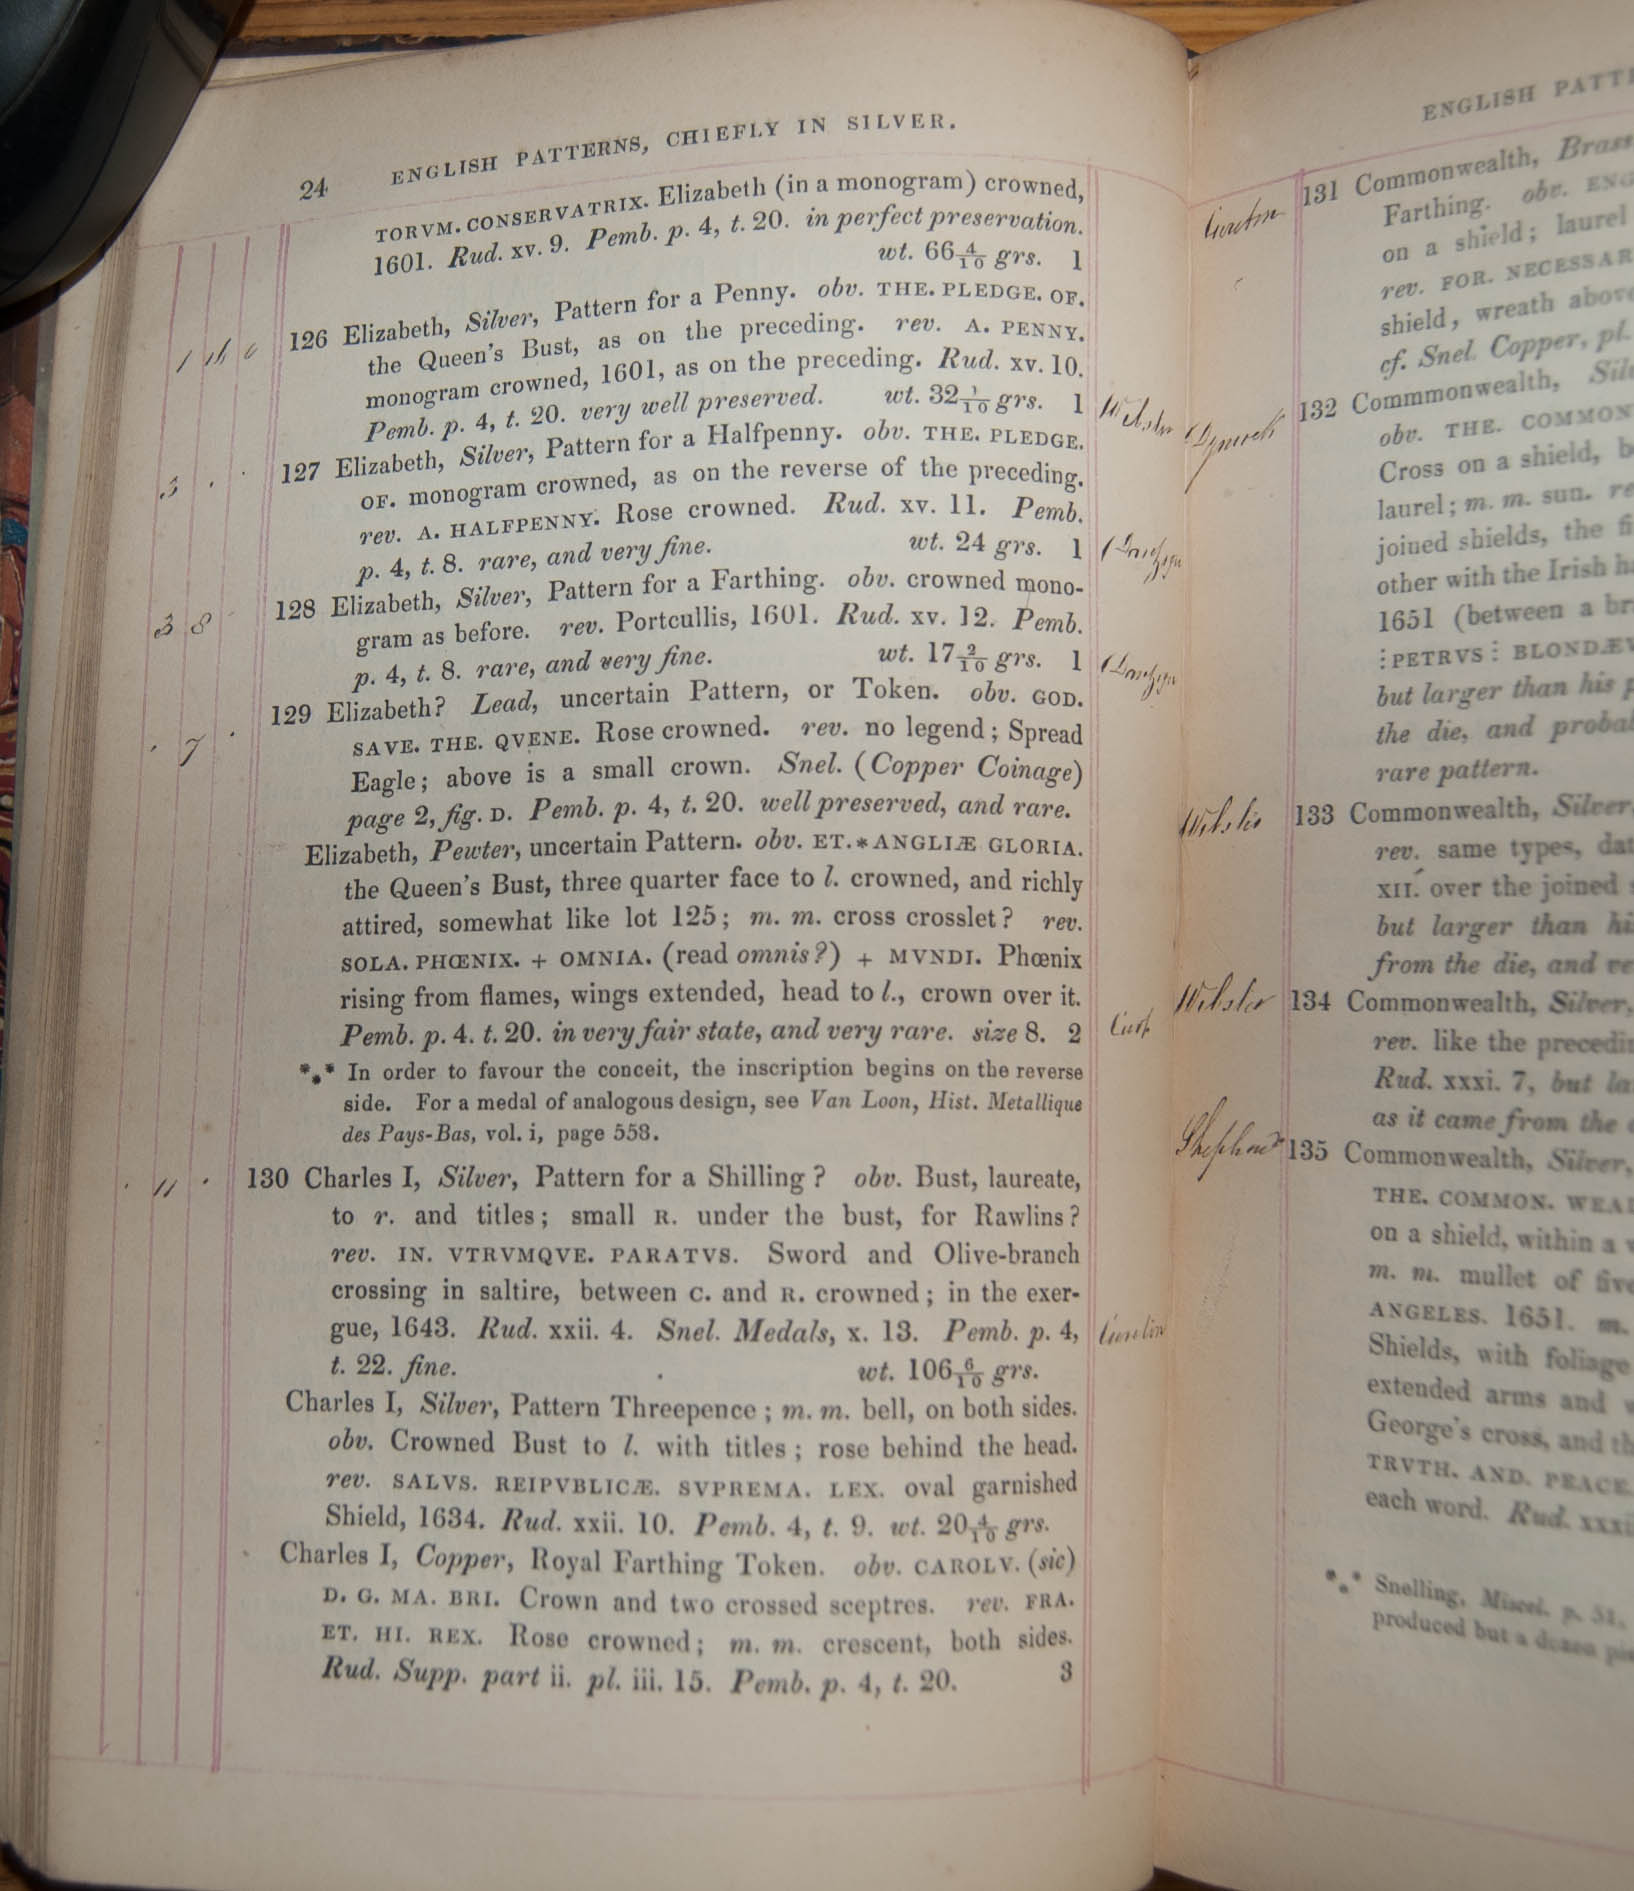 24 ENGLISH PATTERNS, CHIEFLY IN SILVER.
TORVM. CONSERVATRIX. Elizabeth (in a monogram) crowned,
1601. Rud. xv. 9. Pemb. p. 4, t. 20. in perfect preservation.
wt. 66 4/10 grs. 1
126 Elizabeth, Silver, Pattern for a Penny. obv. THE. PLEDGE. OF.
the Queen's Bust, as on the preceding. rev. A. PENNY.
monogram crowned, 1601, as on the preceding. Rud. xv. 10.
Pemb. p. 4, t. 20. very well preserved. wt. 32 1/10 grs. 1 Webster
127 Elizabeth, Silver, Pattern for a Halfpenny. obv. THE. PLEDGE.
3
OF. monogram crowned, as on the reverse of the preceding.
rev. A. HALFPENNY. Rose crowned. Rud. xv. 11. Pemb.
p. 4, t. 8. rare, and very fine. wt. 24 grs. 1
3 8 128 Elizabeth, Silver, Pattern for a Farthing. obv. crowned mono-
gram as before. rev. Portcullis, 1601. Rud. xv. 12. Pemb.
p. 4, t. 8. rare, and very fine. wt. 17 2/10 grs. 1
7 129 Elizabeth? Lead, uncertain Pattern, or Token. obv. GOD.
SAVE. THE. QVENE. Rose crowned. rev. no legend; Spread
Eagle; above is a small crown. Snel. (Copper Coinage)
page 2, fig. D. Pemb. p. 4, t. 20. well preserved, and rare.
Elizabeth, Pewter, uncertain Pattern. obv. ET.*ANGLIÆ GLORIA.
the Queen's Bust, three quarter face to l. crowned, and richly
attired, somewhat like lot 125; m. m. cross crosslet? rev.
SOLA. PHŒNIX. + OMNIA. (read omnis?) + MVNDI. Phœnix
rising from flames, wings extended, head to l., crown over it.
Pemb. p. 4. t. 20. in very fair state, and very rare. size 8. 2 Curt
*** In order to favour the conceit, the inscription begins on the reverse
side. For a medal of analogous design, see Van Loon, Hist. Metallique
des Pays-Bas, vol. i, page 558.
11 130 Charles I, Silver, Pattern for a Shilling? obv. Bust, laureate,
to r. and titles; small R. under the bust, for Rawlins?
rev. IN. VTRVMQVE. PARATVS. Sword and Olive-branch
crossing in saltire, between C. and R. crowned; in the exer-
gue, 1643. Rud. xxii. 4. Snel. Medals, x. 13. Pemb. p. 4,
t. 22. fine. wt. 106 6/10 grs.
Charles I, Silver, Pattern Threepence; m. m. bell, on both sides.
obv. Crowned Bust to l. with titles; rose behind the head.
rev. SALVS. REIPVBLICÆ. SVPREMA. LEX. oval garnished
Shield, 1634. Rud. xxii. 10. Pemb. 4, t. 9. wt. 20 4/10 grs.
Charles I, Copper, Royal Farthing Token. obv. CAROLV. (sic)
D. G. MA. BRI. Crown and two crossed sceptres. rev. FRA.
ET. HI. REX. Rose crowned; m. m. crescent, both sides.
Rud. Supp. part ii. pl. iii. 15. Pemb. p. 4, t. 20. 3
ENGLISH
131 Commonwealth, Brass
Farthing. obv. ENG
on a shield; laurel
rev. FOR. NECESSAR
shield, wreath above
cf. Snel. Copper, pl.
132 Commmonwealth, Silv
obv. THE. COMMON
Cross on a shield,
laurel; m. m. sun.
joined shields, the
other with the Irish
1651 (between a
⋮PETRVS⋮ BLONDÆV
but larger than his
the die, and
rare pattern.
Webster 133 Commonwealth, Silver,
rev. same types,
XII. over the joined
but larger than
from the die, and
Webster 134 Commonwealth, Silver,
rev. like the
Rud. xxxi. 7, but
as it came from the
135 Commonwealth, Silver,
THE. COMMON. WEAL
on a shield, within a
m. m. mullet of
ANGELES. 1651. m.
Shields, with foliage
extended arms and
George's cross, and
TRVTH. AND. PEACE.
each word. Rud.
*** Snelling, Miscel. p. 51,
produced but a dozen